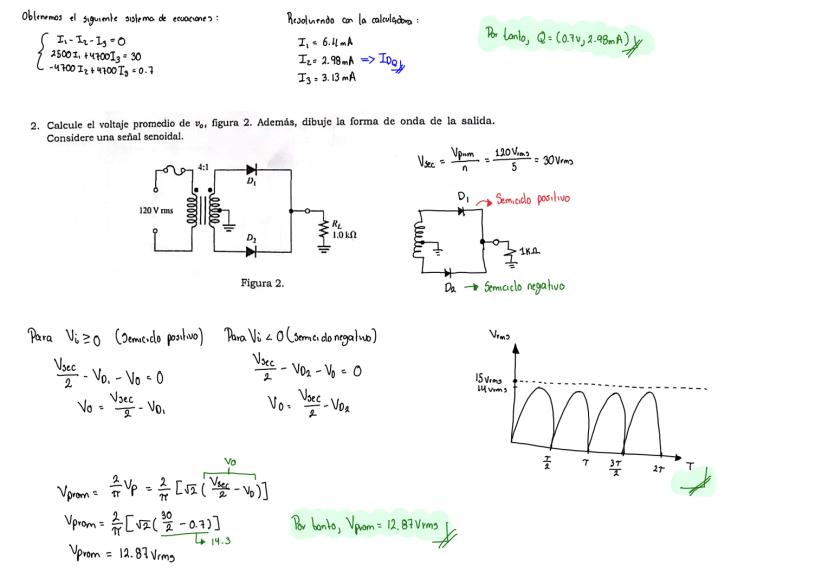 Obtenemos el siguiente sistema de ecuaciones:
I₁ - I₂ - I₃ = 0
2500I₁ + 4700I₃ = 30
-4700I₂ + 4700I₃ = 0.7
Resolviendo con la calculadora:
I₁ = 6.11mA
I₂ = 2.98mA => I_DQ
I₃ = 3.13mA
Por tanto, Q = (0.7V, 2.98mA)
2. Calcule el voltaje promedio de v₀, figura 2. Además, dibuje la forma de onda de la salida.
Considere una señal senoidal.
4:1
D₁
120 V rms
D₂
R_L
1.0 kΩ
Figura 2.
Vsec = Vprim/n = 120Vrms/5 = 30Vrms
D₁ → Semiciclo positivo
1KΩ
D₂ → Semiciclo negativo
Para Vi ≥ 0 (Semiciclo positivo)
Vsec/2 - V_D₁ - V₀ = 0
V₀ = Vsec/2 - V_D₁
Para Vi < 0 (Semiciclo negativo)
Vsec/2 - V_D₂ - V₀ = 0
V₀ = Vsec/2 - V_D₂
Vrms
15Vrms
14Vrms
T/2 T 3T/2 2T T
V₀
Vprom = 2/π Vp = 2/π [√2 (Vsec/2 - V_D)]
Vprom = 2/π [√2 (30/2 - 0.7)]
14.3
Vprom = 12.87Vrms
Por tanto, Vprom = 12.87Vrms